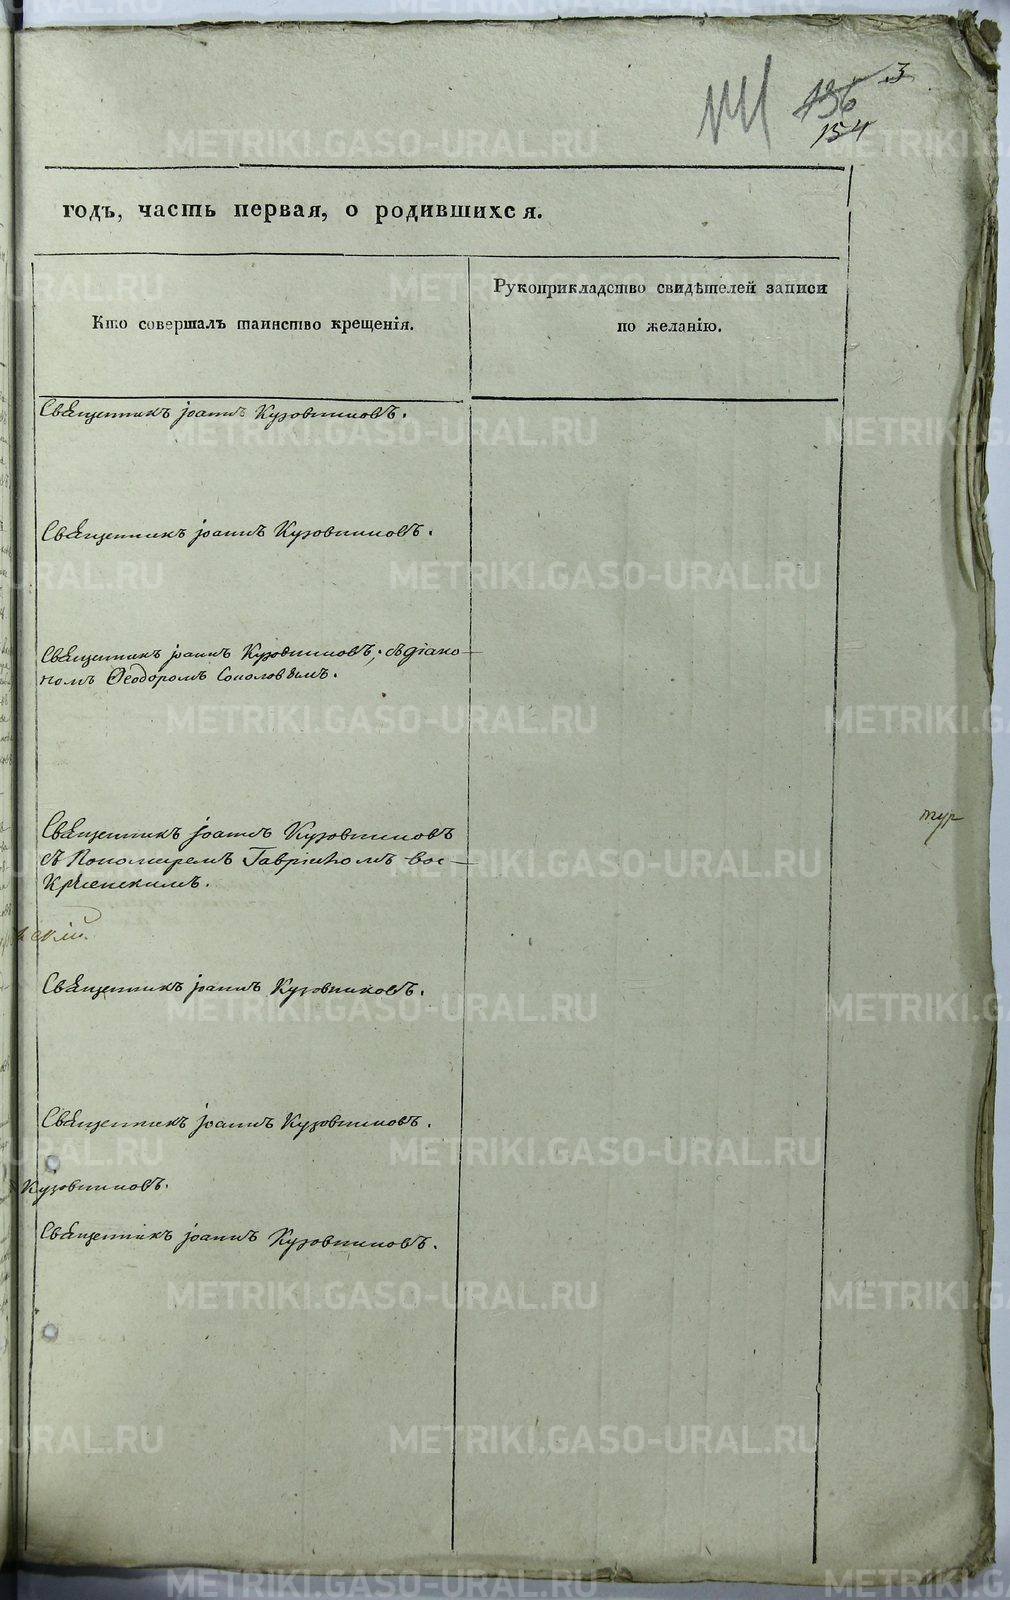 3
136
154
годъ, часть первая, о родившихся.
Кто совершалъ таинство крещенія.
Рукоприкладство свидѣтелей записи
по желанію.
Священникъ Іоаннъ Кузовниковъ.
Священникъ Іоаннъ Кузовниковъ.
Священникъ Іоаннъ Кузовниковъ, съ діако-
номъ Ѳеодоромъ Соколовымъ.
Священникъ Іоаннъ Кузовниковъ
съ Пономаремъ Гавріиломъ Вос-
кресенскимъ.
скій.
Священникъ Іоаннъ Кузовниковъ.
Священникъ Іоаннъ Кузовниковъ.
Кузовниковъ.
Священникъ Іоаннъ Кузовниковъ.
тур
METRIKI.GASO-URAL.RU